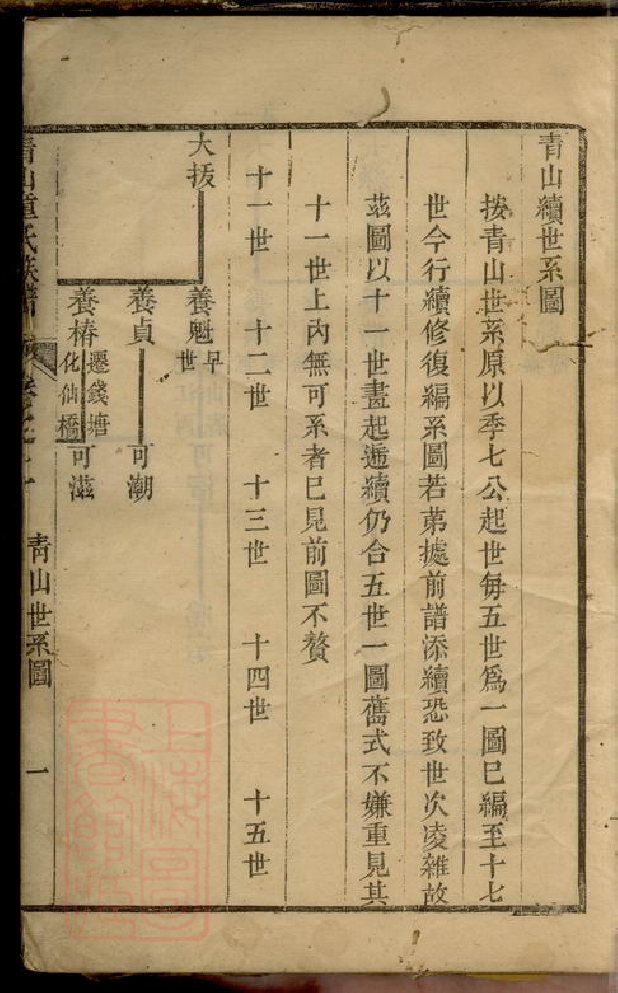 青山續世系圖
按青山世系原以季七公起世每五世爲一圖巳編至十七
世今行續修復編系圖若苐據前譜添續恐致世次凌雜故
茲圖以十一世畫起遞續仍合五世一圖舊式不嫌重見其
十一世上內無可系者巳見前圖不贅
十一世 十二世 十三世 十四世 十五世
大振 養魁 早世
養貞 可潮
養椿 遷錢塘化仙橋 可滋
青山童氏族譜 卷之十一 青山世系圖 一
上海圖書館藏